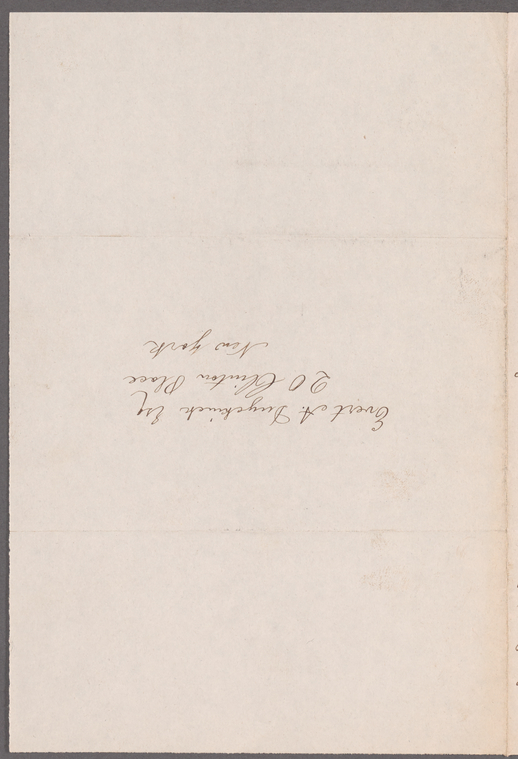 Evert A. Duyckinck Esq
20 Clinton Place
New York